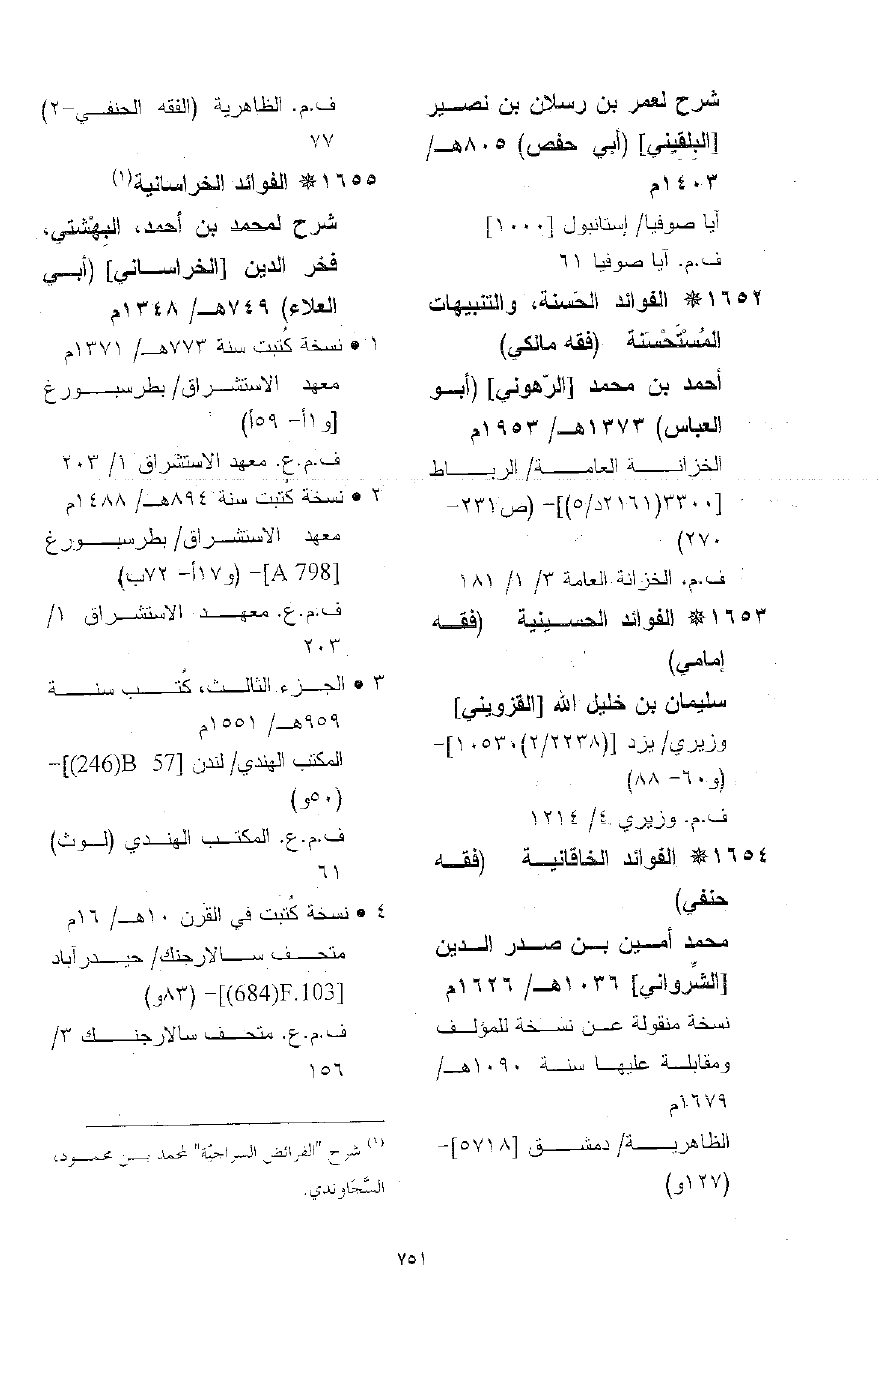 شرح لعمر بن رسلان بن نصير
[البلقيني] (أبي حفص) ٨٠٥هـ/
١٤٠٣م
آيا صوفيا/ إستانبول [١٠٠٠]
ف.م. آيا صوفيا ٦١
١٦٥٢* الفوائد الحَسنة، والتنبيهات
المُسْتَحْسَنة (فقه مالكي)
أحمد بن محمد [الرّهوني] (أبو
العباس) ١٣٧٣هـ/ ١٩٥٣م
الخزانة العامة/ الرباط
[٣٣٠٠(٢١٦١د/٥)]- (ص٢٣١-
٢٧٠)
ف.م. الخزانة العامة ٣/ ١/ ١٨١
١٦٥٣* الفوائد الحسينية (فقه
إمامي)
سليمان بن خليل الله [القزويني]
وزيري/ يزد [١٠٥٣٠(٢/٢٢٣٨)]-
(و٦٠- ٨٨)
ف.م. وزيري ٤/ ١٢١٤
١٦٥٤* الفوائد الخاقانية (فقه
حنفي)
محمد أمين بن صدر الدين
[الشّرواني] ١٠٣٦هـ/ ١٦٢٦م
نسخة منقولة عن نسخة للمؤلف
ومقابلة عليها سنة ١٠٩٠هـ/
١٦٧٩م
الظاهرية/ دمشق [٥٧١٨]-
(١٢٧و)
ف.م. الظاهرية (الفقه الحنفي-٢)
٧٧
١٦٥٥* الفوائد الخراسانية(١)
شرح لمحمد بن أحمد، البِهْشتي،
فخر الدين [الخراساني] (أبي
العلاء) ٧٤٩هـ/ ١٣٤٨م
١ • نسخة كُتبت سنة ٧٧٣هـ/ ١٣٧١م
معهد الاستشراق/ بطرسبورغ
[و١أ- ٥٩أ)
ف.م.ع. معهد الاستشراق ١/ ٢٠٣
٢ • نسخة كُتبت سنة ٨٩٤هـ/ ١٤٨٨م
معهد الاستشراق/ بطرسبورغ
[A 798]- (و١٧أ- ٧٢ب)
ف.م.ع. معهد الاستشراق ١/
٢٠٣
٣ • الجزء الثالث، كُتب سنة
٩٥٩هـ/ ١٥٥١م
المكتب الهندي/ لندن [B 57(246)]-
(٥٠و)
ف.م.ع. المكتب الهندي (لوث)
٦١
٤ • نسخة كُتبت في القرن ١٠هـ/ ١٦م
متحف سالارجنك/ حيدرآباد
[F.103(684)]- (٨٣و)
ف.م.ع. متحف سالارجنك ٣/
١٥٦
(١) شرح "الفرائض السراجيّة" لمحمد بن محمود،
السَّجَاوندي.
٧٥١